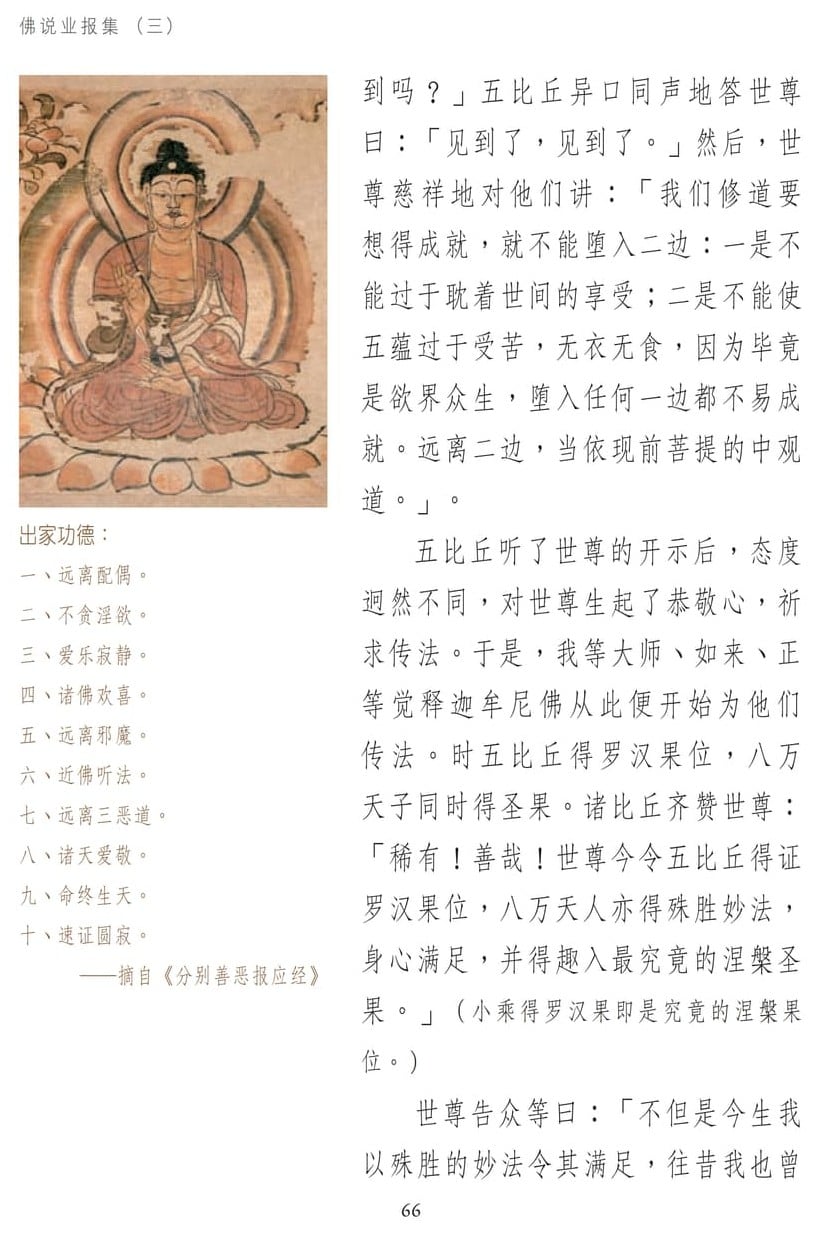 佛说业报集（三）
出家功德：
一、远离配偶。
二、不贪淫欲。
三、爱乐寂静。
四、诸佛欢喜。
五、远离邪魔。
六、近佛听法。
七、远离三恶道。
八、诸天爱敬。
九、命终生天。
十、速证圆寂。
——摘自《分别善恶报应经》
到吗？」五比丘异口同声地答世尊
曰：「见到了，见到了。」然后，世
尊慈祥地对他们讲：「我们修道要
想得成就，就不能堕入二边：一是不
能过于耽着世间的享受；二是不能使
五蕴过于受苦，无衣无食，因为毕竟
是欲界众生，堕入任何一边都不易成
就。远离二边，当依现前菩提的中观
道。」。
五比丘听了世尊的开示后，态度
迥然不同，对世尊生起了恭敬心，祈
求传法。于是，我等大师、如来、正
等觉释迦牟尼佛从此便开始为他们
传法。时五比丘得罗汉果位，八万
天子同时得圣果。诸比丘齐赞世尊：
「稀有！善哉！世尊今令五比丘得证
罗汉果位，八万天人亦得殊胜妙法，
身心满足，并得趣入最究竟的涅槃圣
果。」（小乘得罗汉果即是究竟的涅槃果
位。）
世尊告众等曰：「不但是今生我
以殊胜的妙法令其满足，往昔我也曾
66